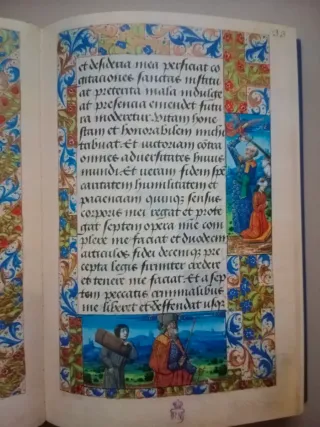 et desideria mea perficiat co
gitaciones sanctas institu
at preterita mala indulge
at presencia emendet futu
ra moderetur. Vitam hone
stam et honorabilem michi
tribuat. Et victoriam cōtra
omnes adversitates huius
mundi. Et veram fidem spē
caritatem humilitatem et
pacienciam quinqꝫ sensus
corporis mei regat et prote
gat septem opera mīe com
plere me faciat et duodecim
articulos fidei decemqꝫ pre
cepta legis firmiter credere
et tenere me faciat. Et a sep
tem peccatis criminalibus
me liberet et deffendat usqꝫ